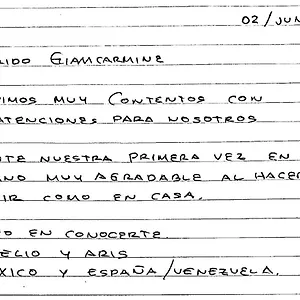 02/JUN
IDO GIANCARMINE
IMOS MUY CONTENTOS CON
ATENCIONES PARA NOSOTROS
TE NUESTRA PRIMERA VEZ EN
NO MUY AGRADABLE AL HACER
IR COMO EN CASA.
O EN CONOCERTE
ELIO Y ARIS
XICO Y ESPAÑA/VENEZUELA.